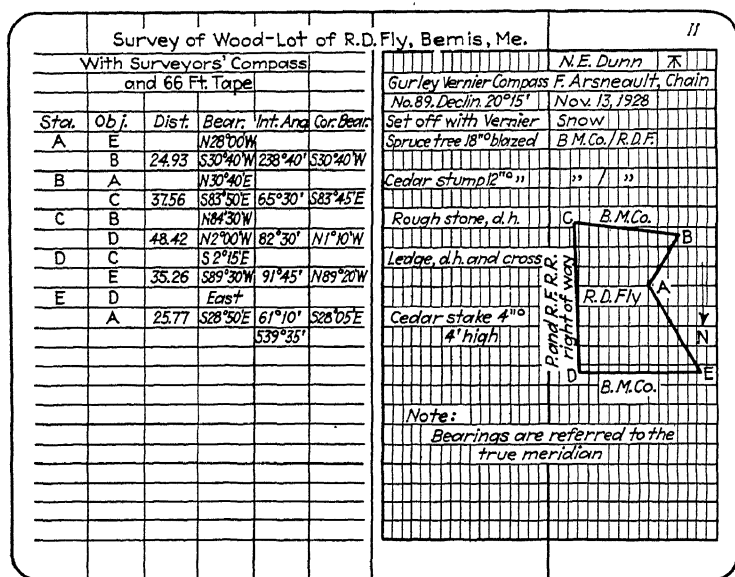 11
Survey of Wood-Lot of R.D.Fly, Bemis, Me.
With Surveyors' Compass
and 66 Ft. Tape
Sta. Obj. Dist. Bear. Int. Ang. Cor. Bear.
A E N28°00'W
B 24.93 S30°40'W 238°40' S30°40'W
B A N30°40'E
C 37.56 S83°50'E 65°30' S83°45'E
C B N84°30'W
D 48.42 N2°00'W 82°30' N1°10'W
D C S2°15'E
E 35.26 S89°30'W 91°45' N89°20'W
E D East
A 25.77 S28°50'E 61°10' S28°05'E
539°35'
N.E. Dunn
Gurley Vernier Compass F. Arsneault, Chain
No.89. Declin. 20°15' Nov. 13, 1928
Set off with Vernier Snow
Spruce tree 18"° blazed B.M.Co./R.D.F.
Cedar stump 12"° " " / "
Rough stone, d.h.
Ledge, d.h. and cross
Cedar stake 4"°
4' high
C B.M.Co. B
A
R.D.Fly
P. and R.F. R.R.
right of way
N
D E
B.M.Co.
Note:
Bearings are referred to the
true meridian